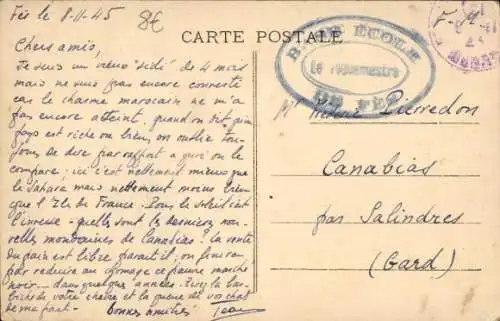 Fès le 8-11-45
8€
Chers amis,
Je suis un vieux "sidi" de 4 mois
mais ne suis pas encore converti
car le charme marocain ne m'a
pas encore atteint, quand on dit qu'un
pays est riche ou bien, on oublie tou-
jours de dire par rapport à quoi on le
compare; ici c'est nettement mieux que
le Sahara mais nettement moins bien
que l'Ile de France. Sous le soleil c'est
l'inverse - quelles sont les dernières nou-
velles mondaines de Canabias? La vente
du pain est libre paraît il; on finira
par réduire au chomage ce pauvre marché
noir... dans quelques années. Tirez la bar-
biche de votre chèvre et la queue de vos chats
de ma part. Bonnes amitiés Jean
CARTE POSTALE
BASE ECOLE
Le vaguemestre
DE FÈS
F. M.
Mr Pierredon
Canabias
par Salindres
(Gard)